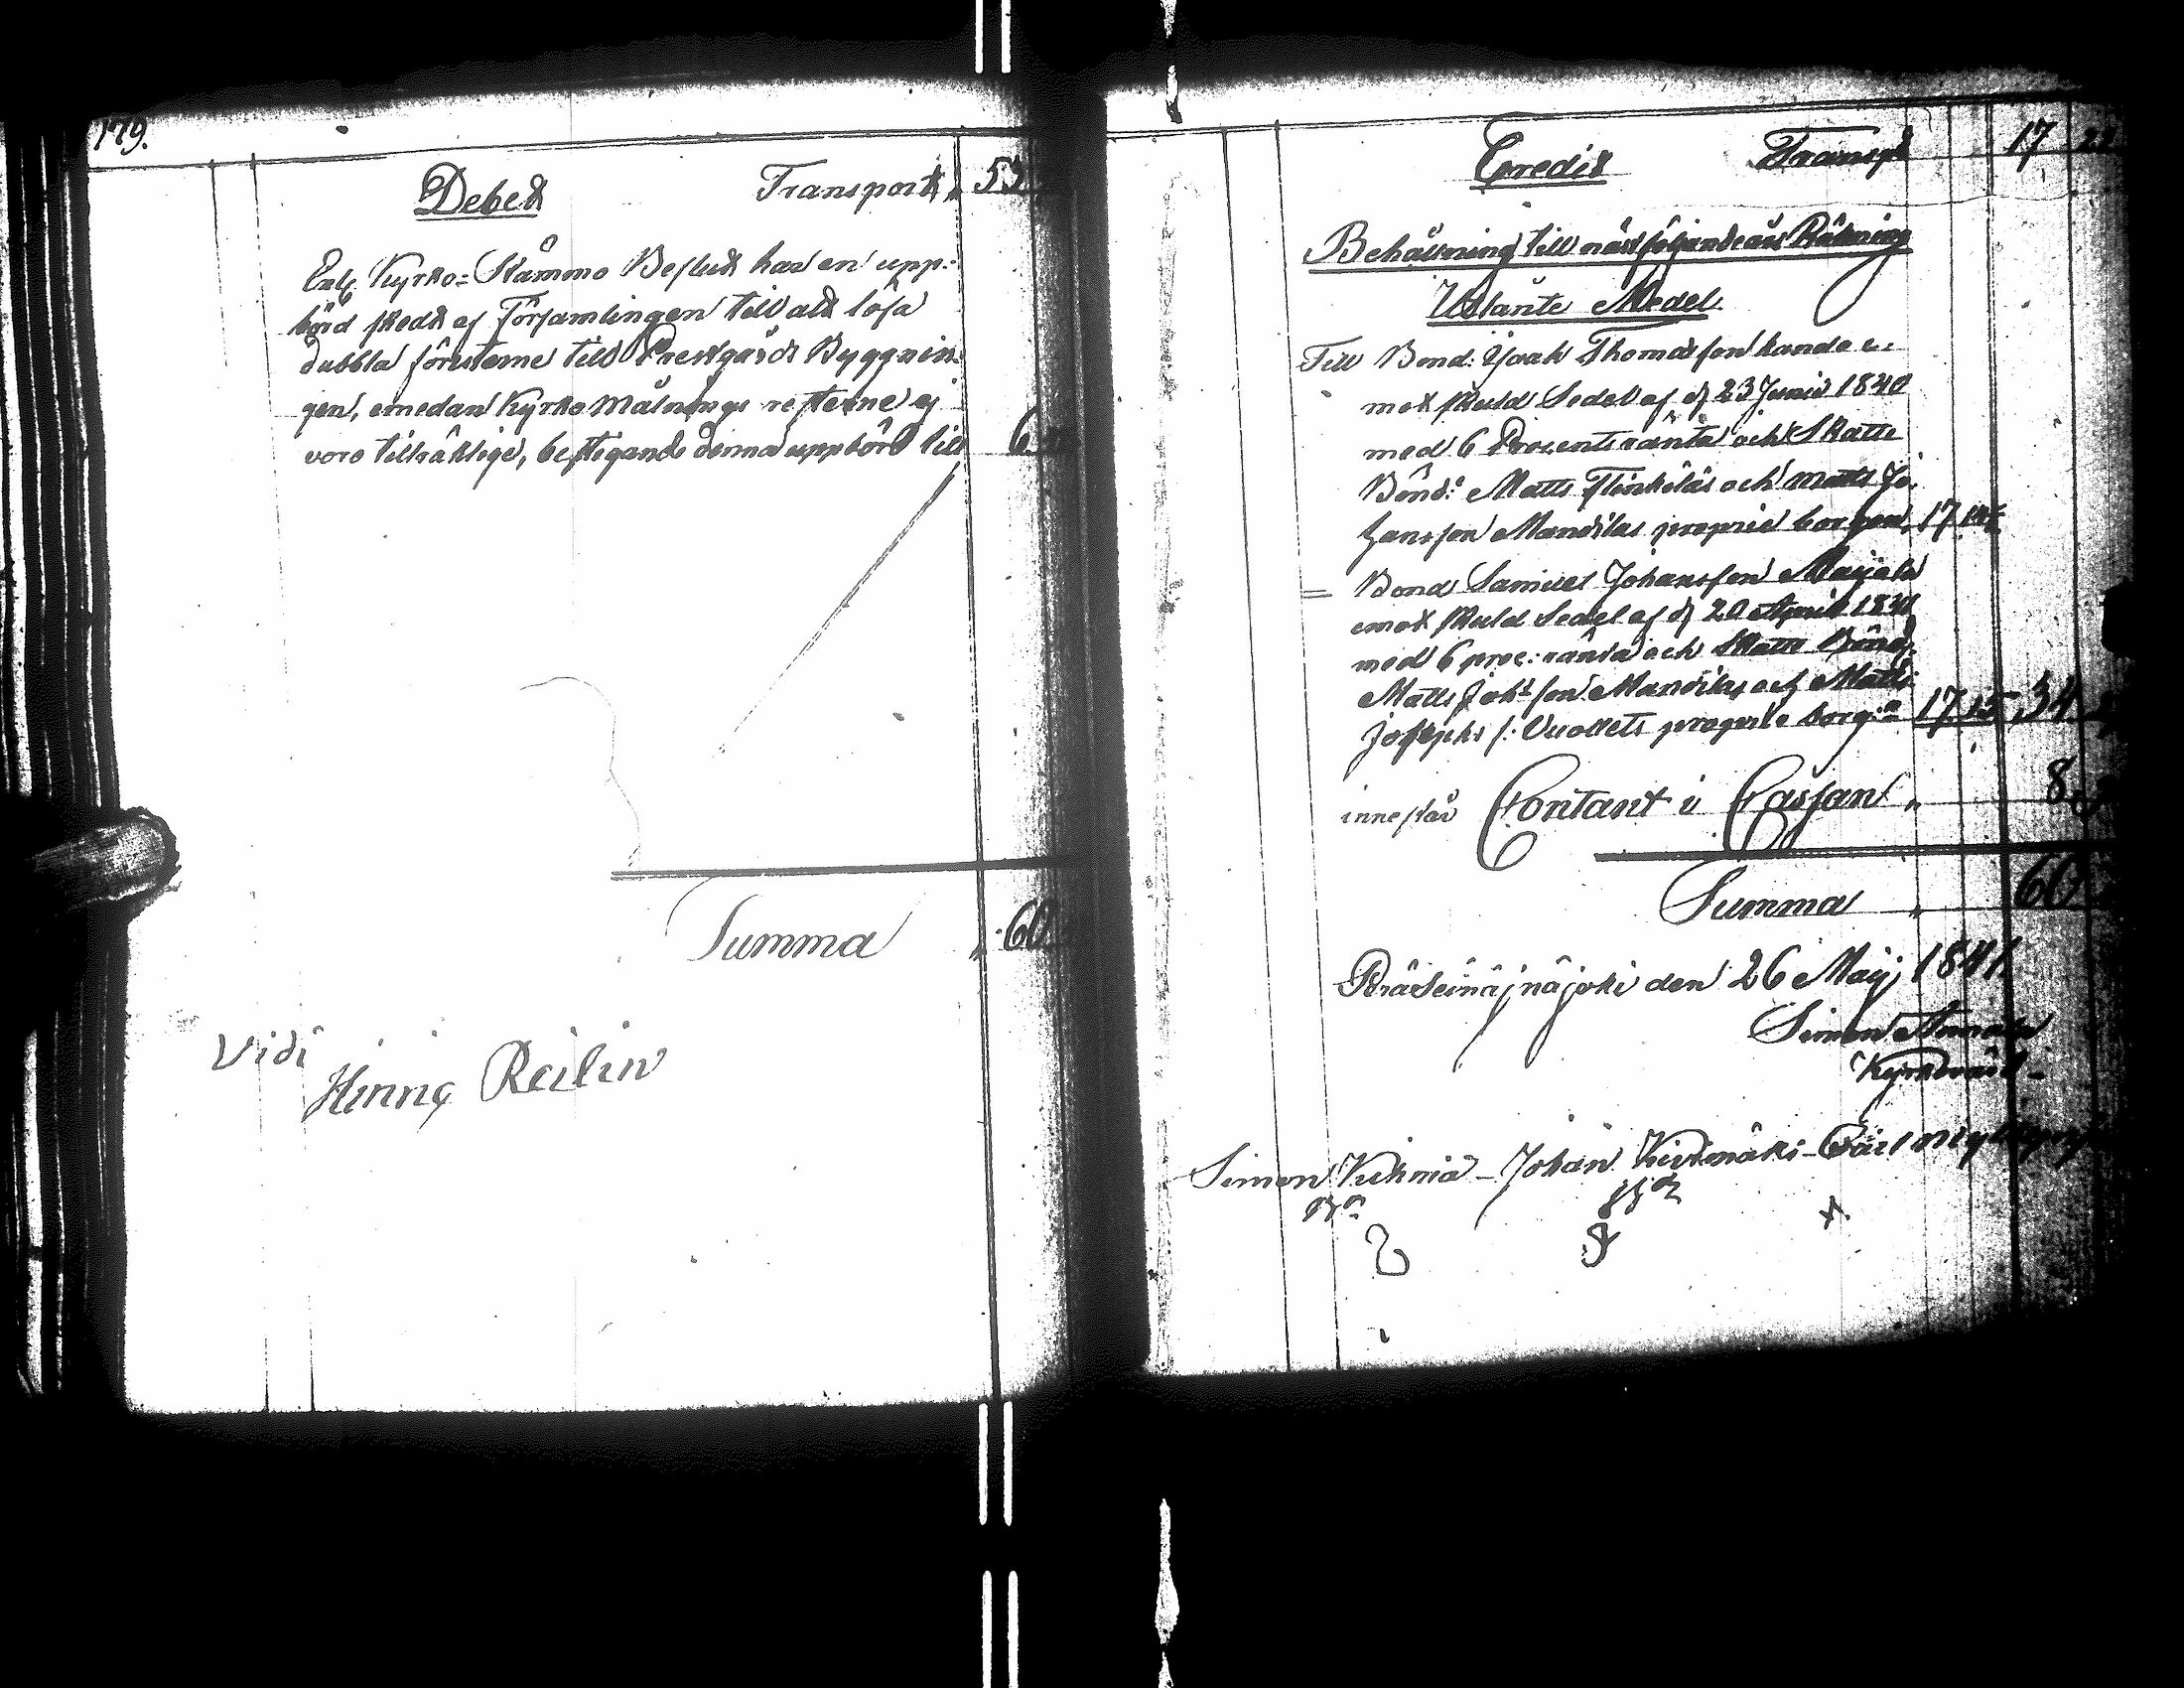 179.
Debet Transport 53
Enl. Kyrko-Stämmo Beslut har en upp-
börd skedt af Församlingen till att lösa
dubbla fönsterne till Prestgårds Byggnin-
gen, emedan Kyrko Målnings resterne ej
voro tillräklige, bestigande denna uppbörd till 6
Summa 60
Vidi
Henric Reilin
Credit Transpt 17 22
Behållning till nästföljande års Räkning
Utlånte Medel
Till Bond: Isaak Thomasson
mot skuld Sedel af d 23 Junii 1840
med 6 Procents ränta och Skatte
Bönd: Matts och Matts Jo-
hansson Mandilas proprie borgen, 17
= Bond Samuel Johansson
emot skuld Sedel af d 20 April
med 6 proc: ränta och Skatte Bönd:
Matts Joh:son Mandilas och Matts
Josephs s: Vuollets proprie borg:n 17 15 34
innestår Contant i Cassan 8
Summa 60
den 26 Maij 1841
Simon
Kyrkovärd
Simon Kuhnia - Johan Kivimäki -